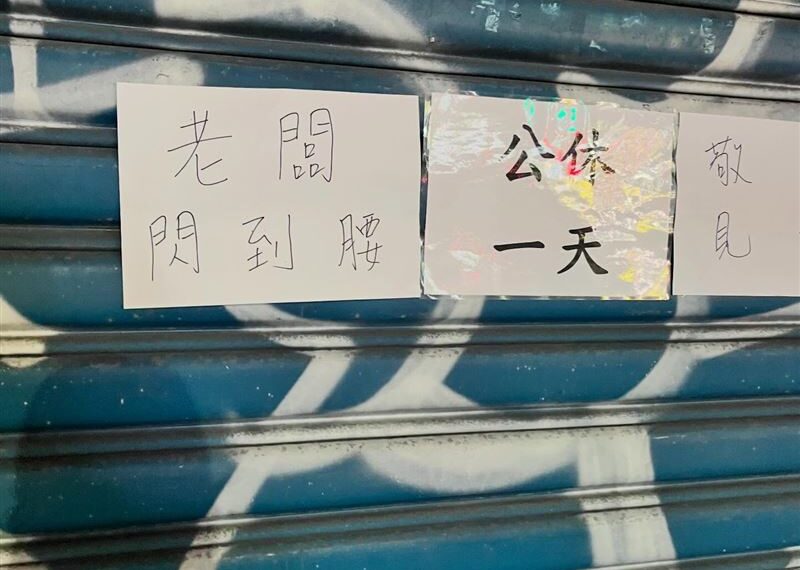 老闆
閃到腰
公休
一天
敬
見